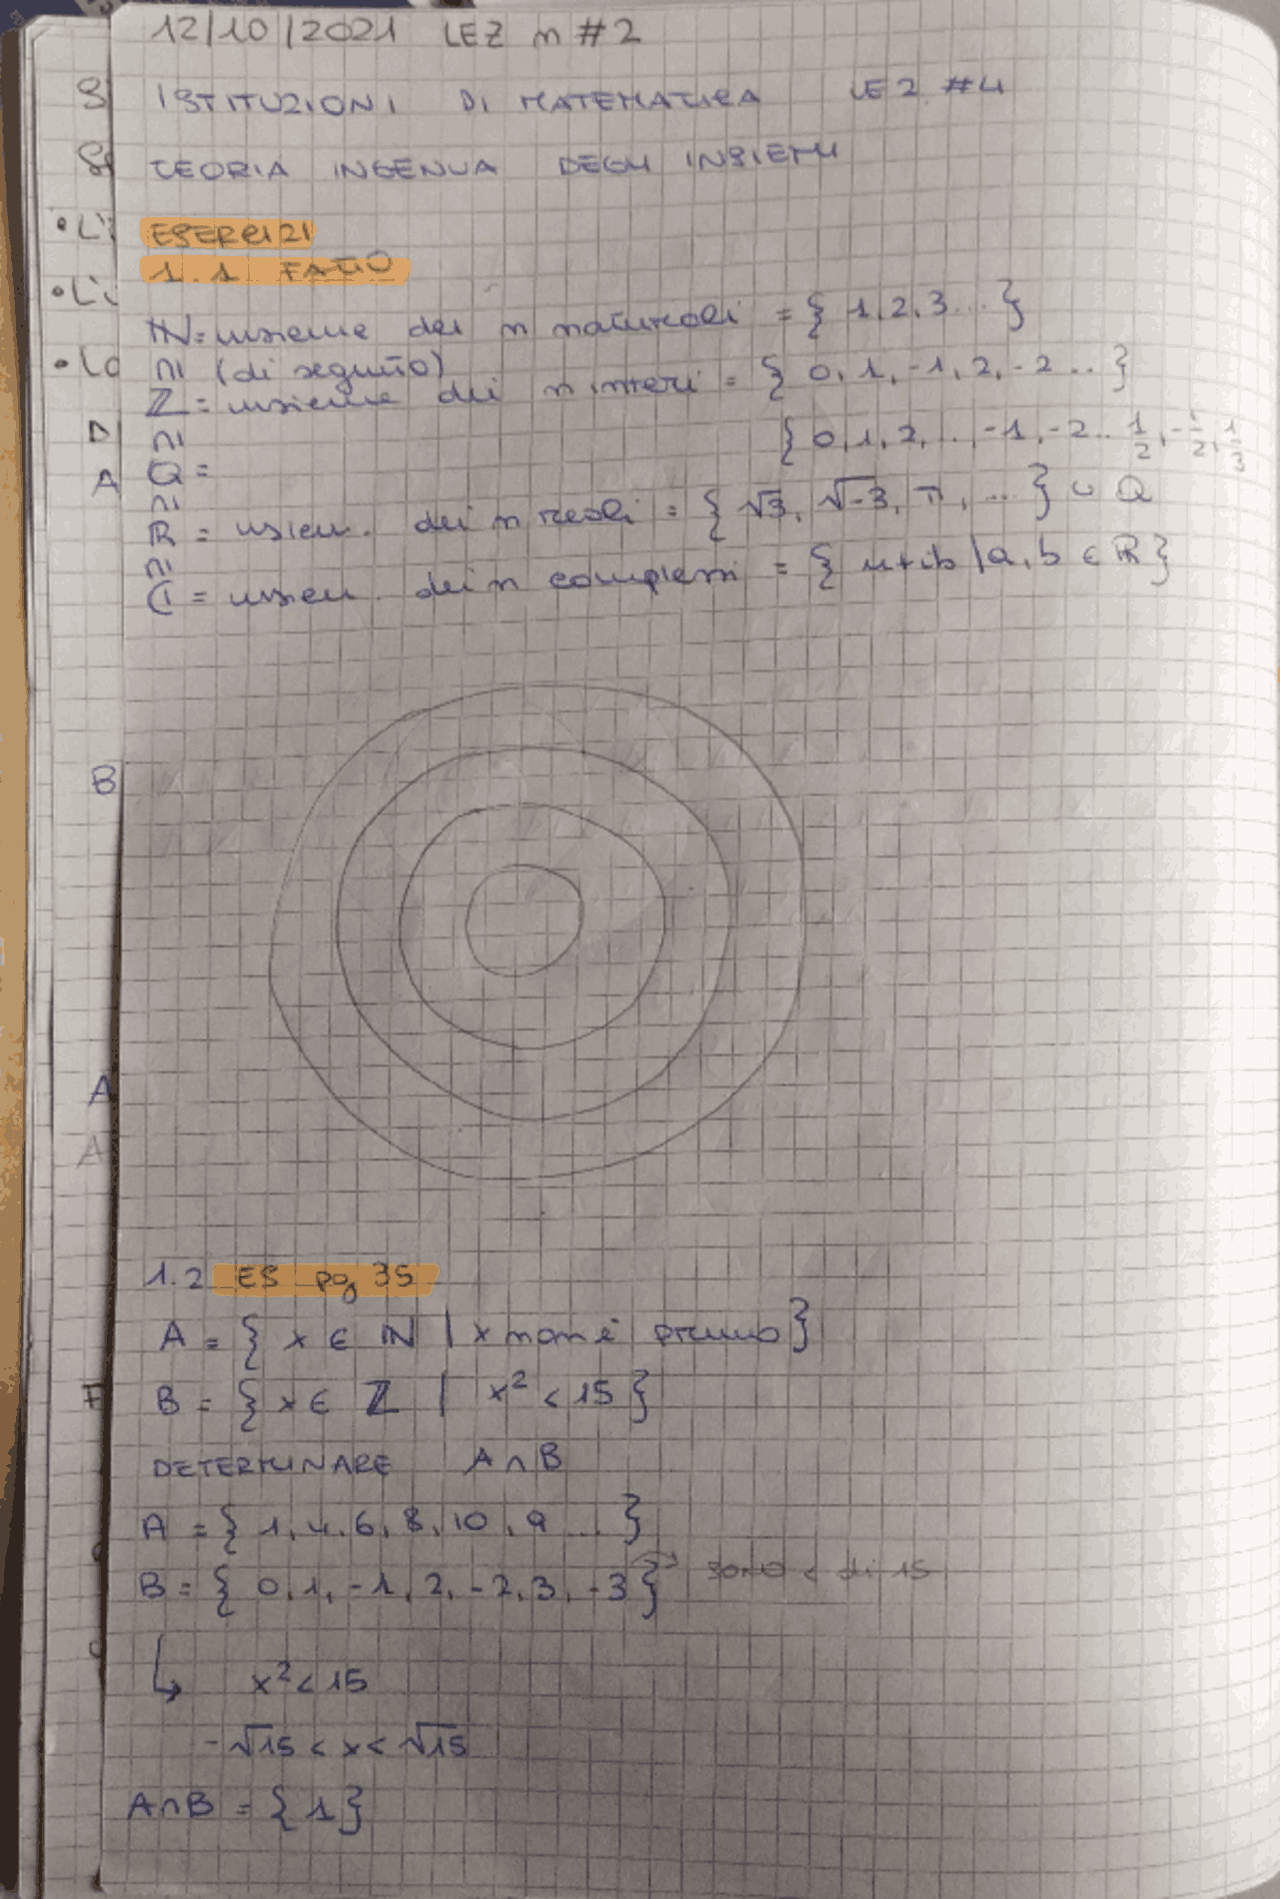 12/10/2021 LEZ n #2
ISTITUZIONI DI MATEMATICA LEZ #4
TEORIA INGENUA DEGLI INSIEMI
ESERCIZI
1.1 FATTO
ℕ = insieme dei n naturali = { 1, 2, 3... }
∩| (di seguito)
ℤ = insieme dei n interi = { 0, 1, -1, 2, -2 .. }
∩|
Q = { 0, 1, 2, .., -1, -2.. 1/2, -1/2, 1/3
∩|
ℝ = insiem. dei n reali = { √3, √-3, π, ... } ∪ Q
∩|
ℂ = insiem. dei n complessi = { a+ib | a, b ∈ ℝ }
1.2 ES pg 35
A = { x ∈ ℕ | x non è primo }
B = { x ∈ ℤ | x² < 15 }
DETERMINARE A ∩ B
A = { 1, 4, 6, 8, 10, 9 ... }
B = { 0, 1, -1, 2, -2, 3, -3 } → sono < di 15
↳ x² < 15
-√15 < x < √15
A∩B = { 1 }